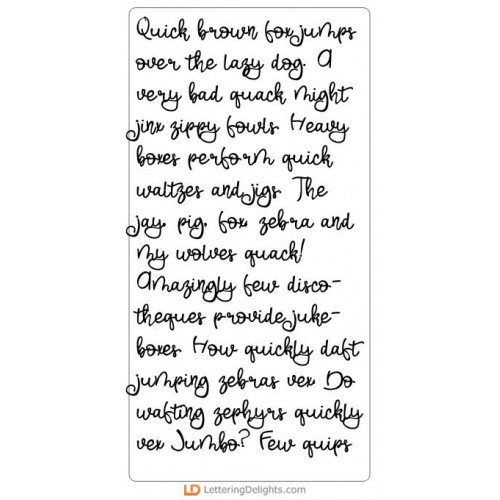 Quick brown fox jumps
over the lazy dog. A
very bad quack might
jinx zippy fowls. Heavy
boxes perform quick
waltzes and jigs. The
jay, pig, fox, zebra and
my wolves quack!
Amazingly few disco-
theques provide juke-
boxes. How quickly daft
jumping zebras vex. Do
wafting zephyrs quickly
vex Jumbo? Few quips
LD LetteringDelights.com